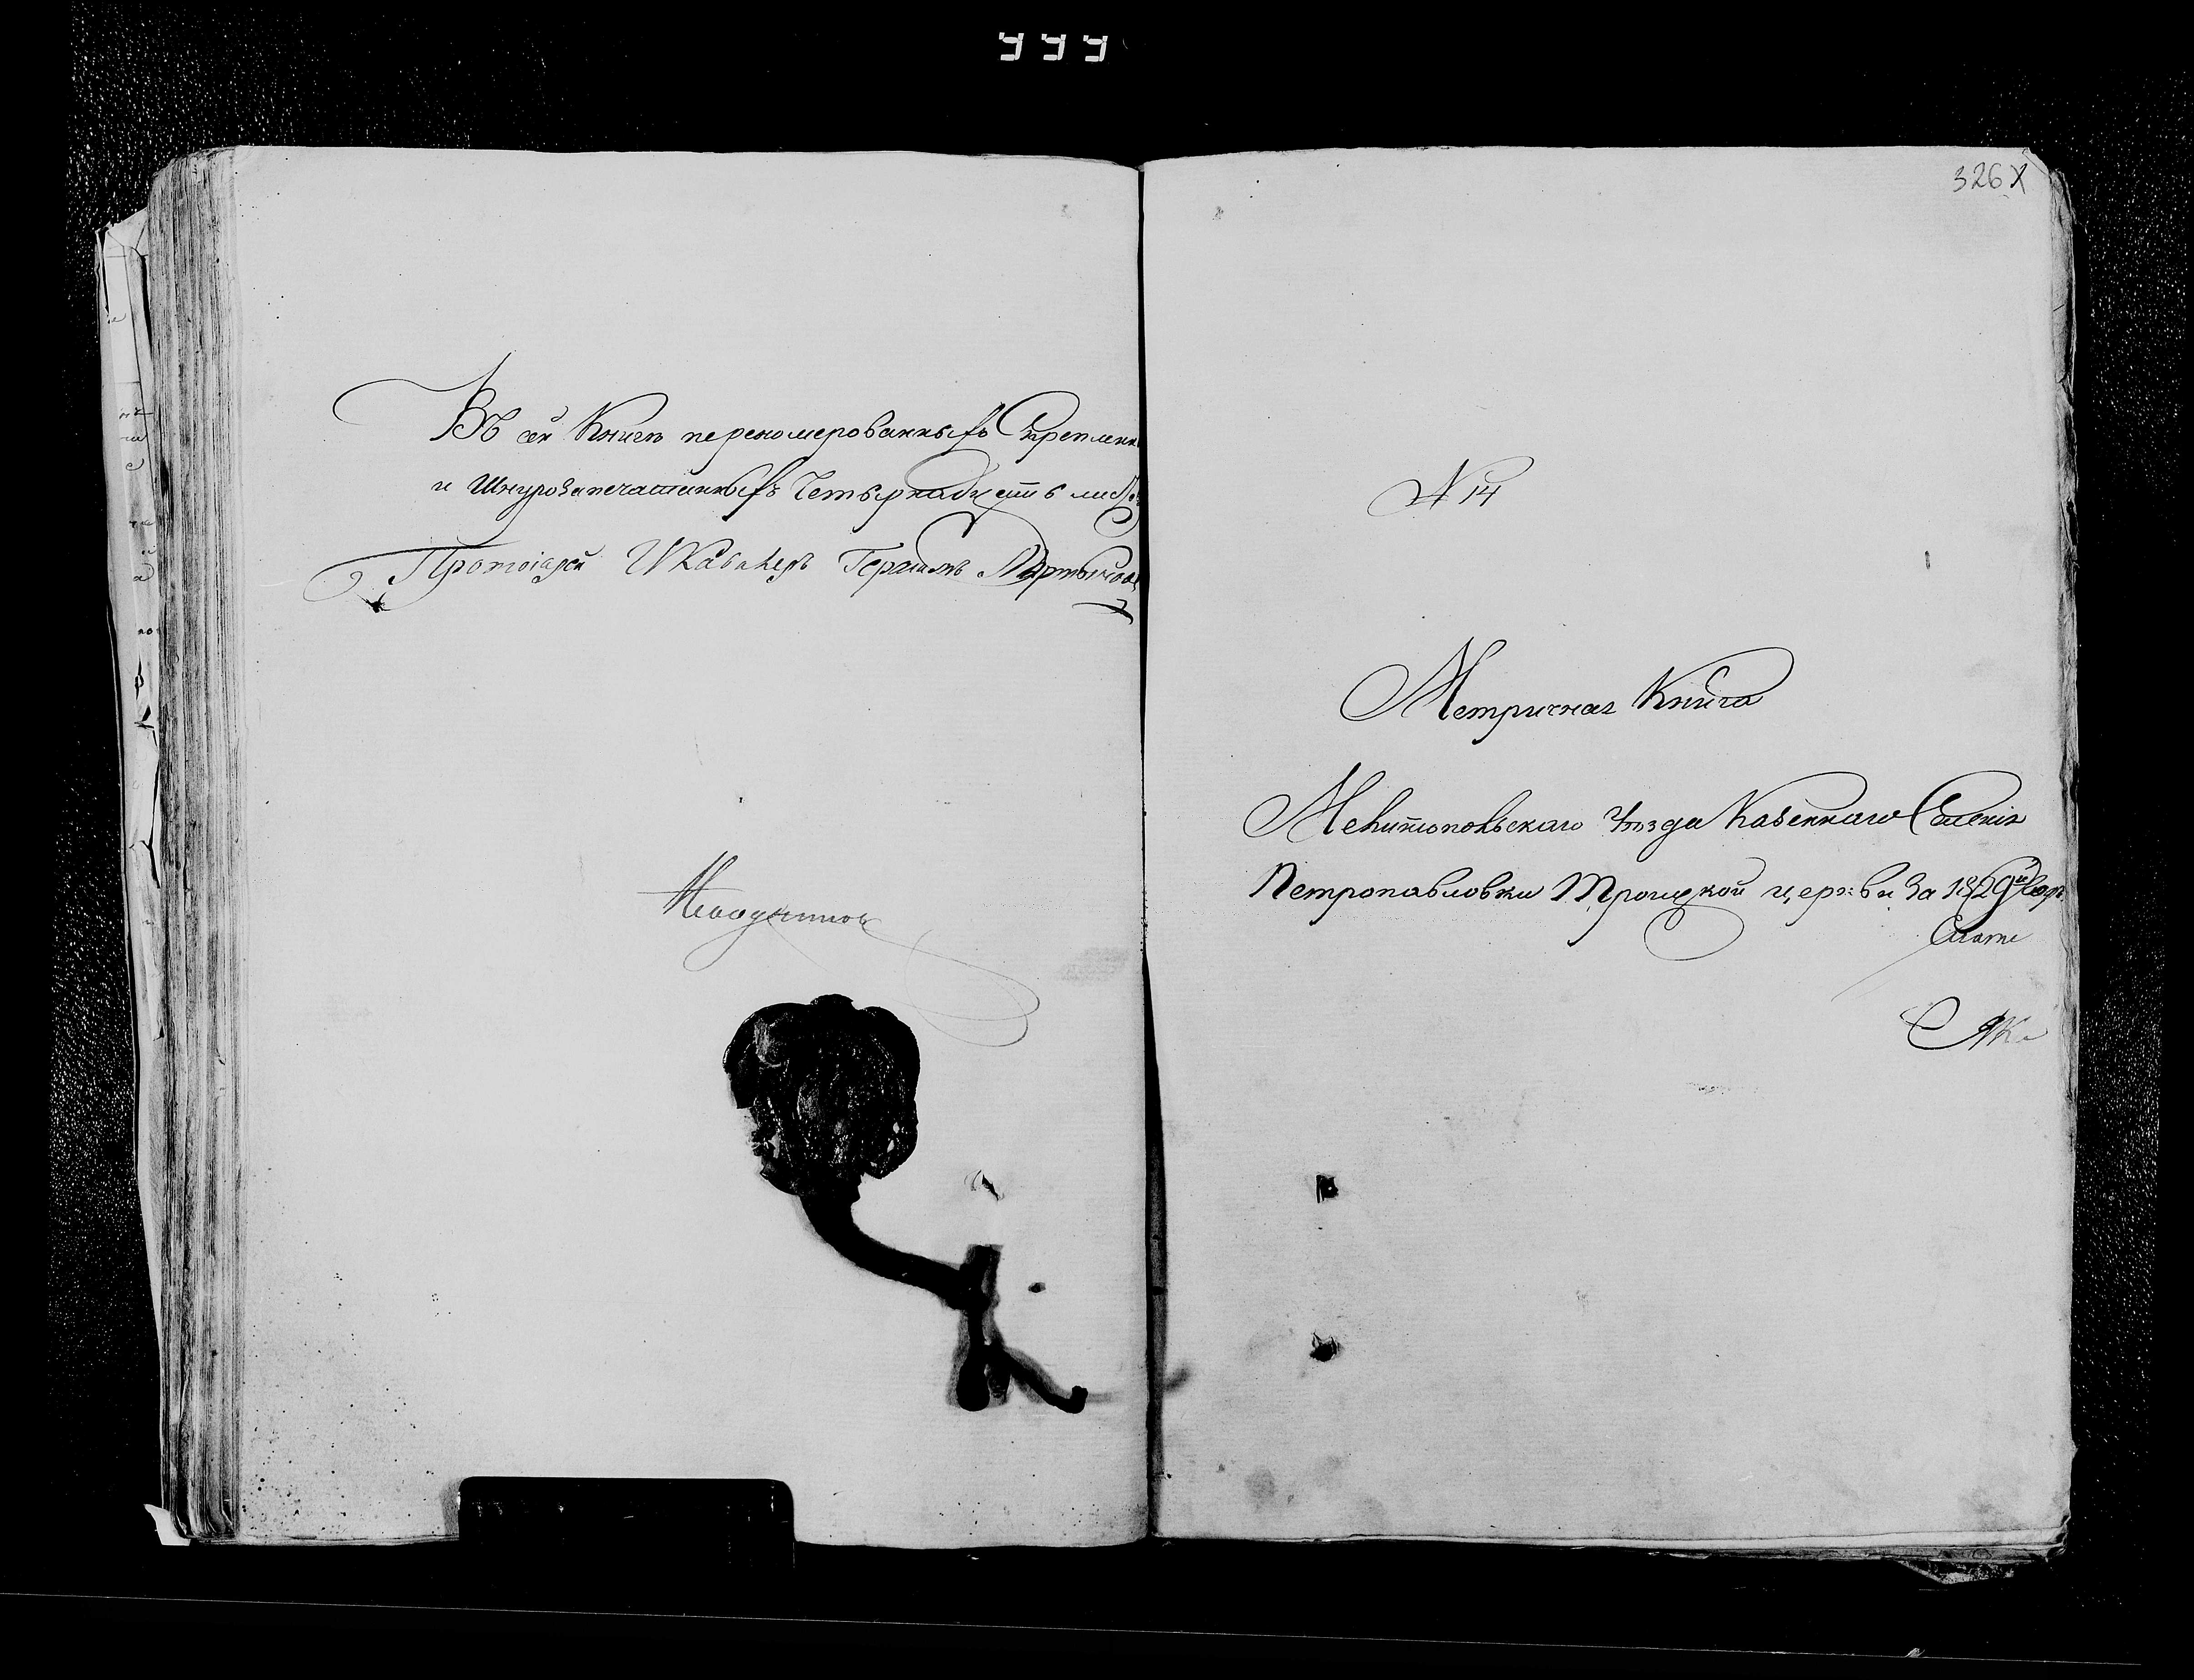 326
Въ сей Книгѣ перенумерованныхъ Скрепленн
и Шнурозапечатанныхъ Четырнадцать лис
Протоіерей И Кавалеръ Герасимъ
N 14
Метричная Книга
Мелитопольскаго Уѣзда Казеннаго Селенія
Петропавловки Троицкой церкви За 1829й Годъ